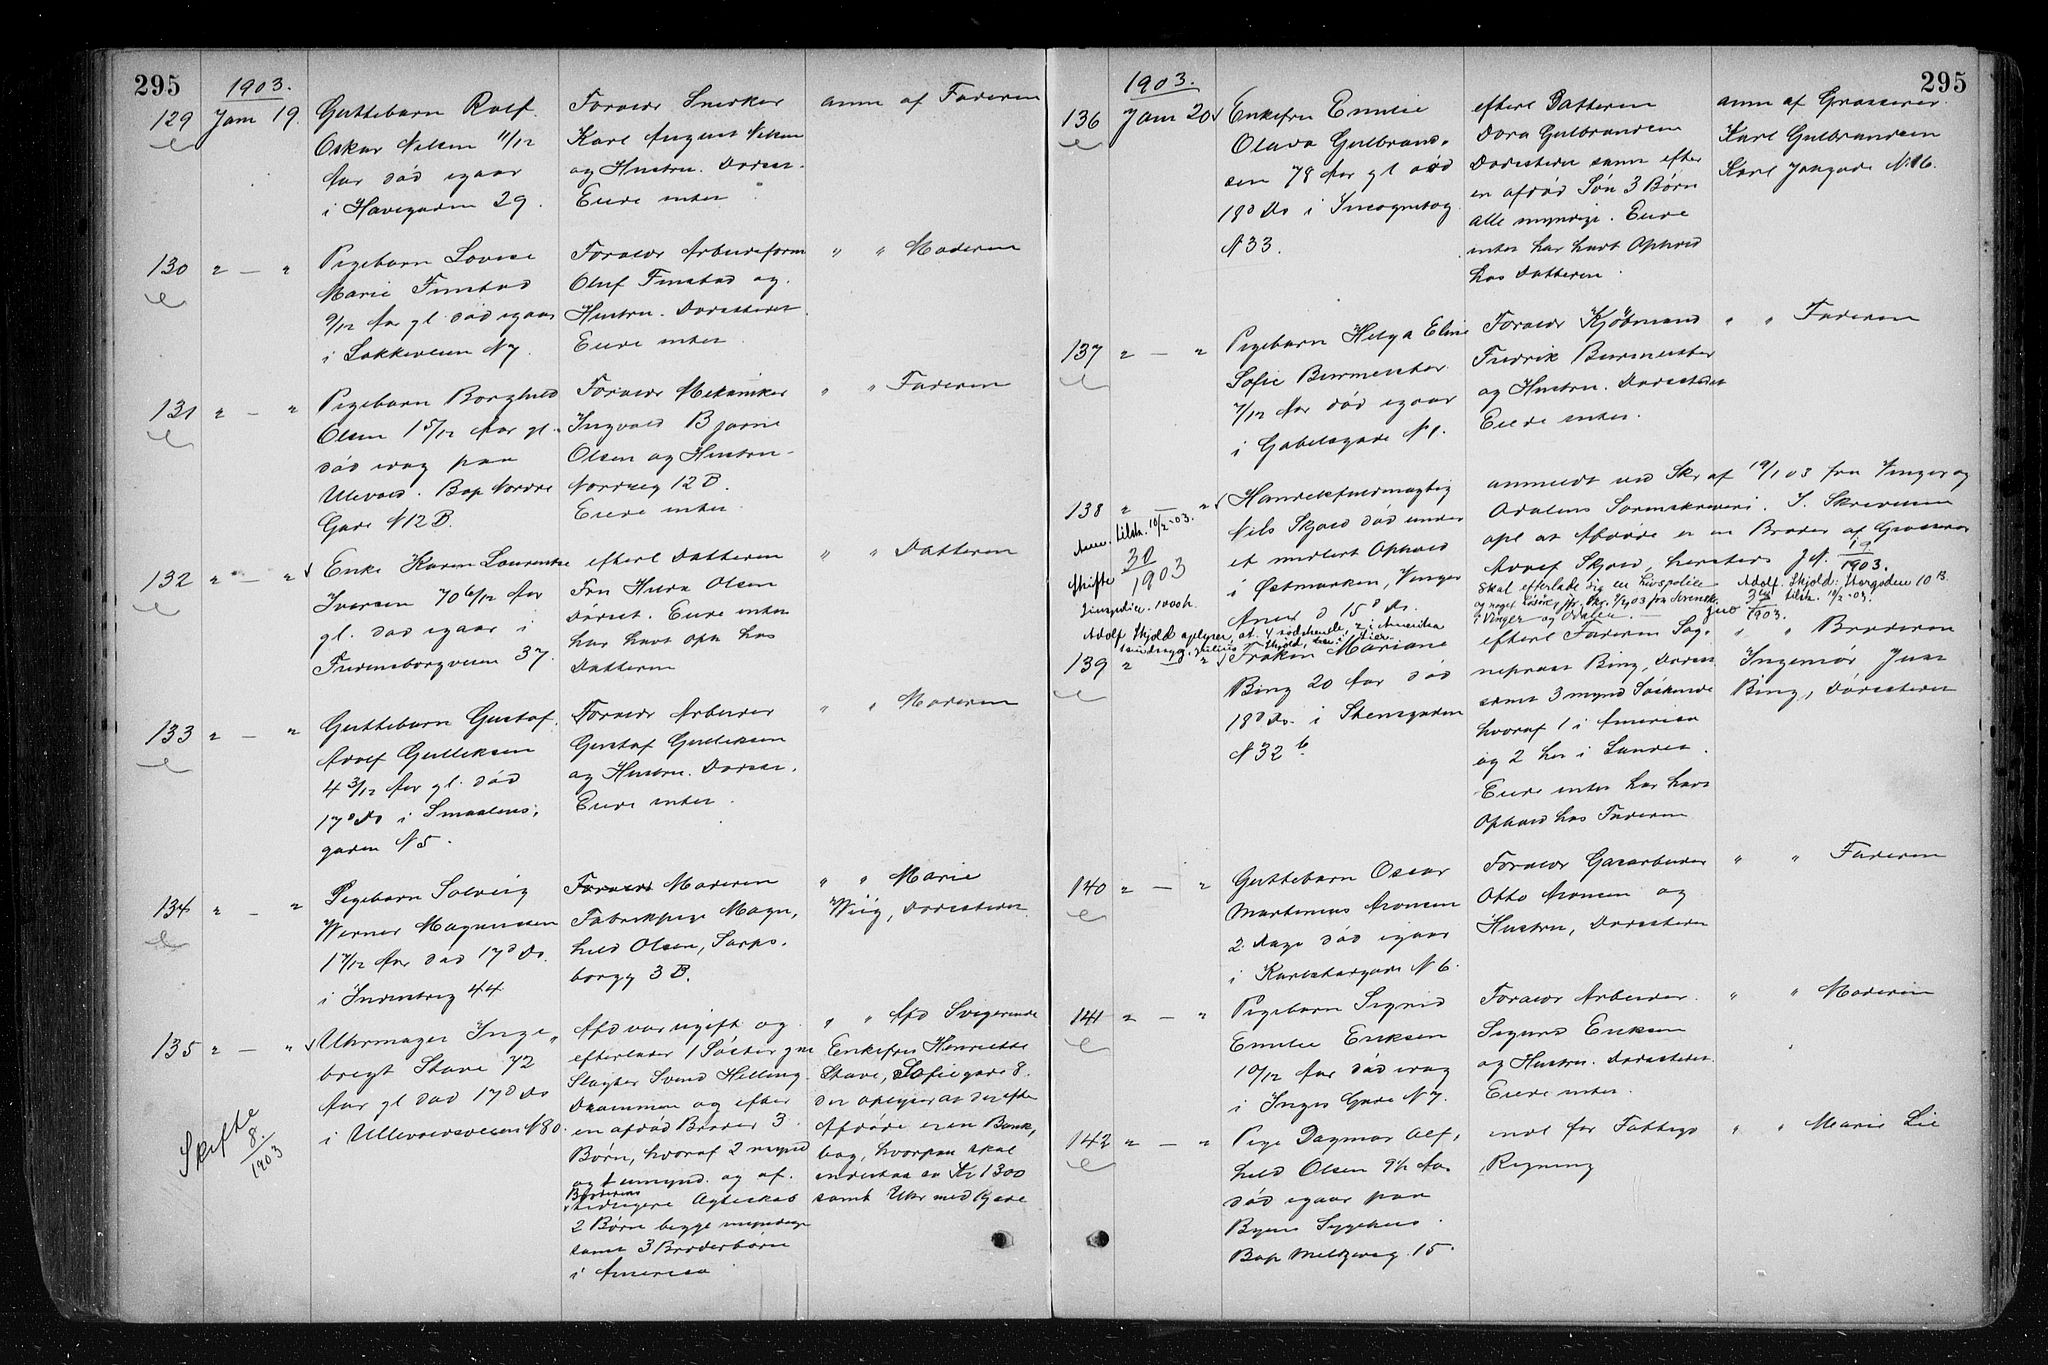 295
1903.
129 Jan 19.
Guttebarn Rolf
Oskar Nilsen 11/12
Aar død igaar
i Havegaden 29.
Forældr Snedker
Karl August Nilsen
og Hustru. Dorsts.
Eiede intet
anm af Faderen
130 " — "
Pigebarn Lovise
Marie Finstad
9/12 Aar gl. død igaar
i Løkkeveien N 7.
Forældr Arbeidsform
Oluf Finstad og
Hustru. Dorstedet
Eiede intet
" " Moderen
131 " — "
Pigebarn Borghild
Olsen 1 5/12 Aar gl.
død idag paa
Ullevold. Bop Nordre
Gade N 12 B.
Forældr Mekaniker
Ingvald Bjarne
Olsen og Hustru
Nordreg 12 B.
Eiede intet
" " Faderen
132 " — "
Enke Karen Laurentse
Iversen 70 6/12 Aar
gl. død igaar i
Fredensborgveien 37.
efterl Datteren
Fru Hilda Olsen
Dorst. Eiede intet
har havt oph hos
Datteren
" " Datteren
133 " — "
Guttebarn Gustaf
Adolf Gulliksen
4 3/12 Aar gl. død
17d Ds i Smaalens,
gaden N 5.
Forældr Arbeider
Gustaf Gulliksen
og Hustru. Dorsts.
Eiede intet
" " Moderen
134 " — "
Pigebarn Solveig
Werner Magnussen
1 7/12 Aar død 17d Ds.
i Industrig 44
Forældr Moderen
Fabrikpige Magn,
hild Olsen, Sarps.
borgg 3 B.
" " Marie
Wiig, Dorstedet
135 " — "
Uhrmager Inge,
bregt Stave 72
Aar gl død 17d Ds
i Ullevoldsveien N 80.
Skifte
8.
1903
Afd var ugift og
efterlader 1 Søster gm
Slagter Svend Helling
Drammen og efter
en afdød Broder 3
Børn, hvoraf 2 mynd
og 1 umynd. og af
Broderens
tidligere Ægteskab
2 Børn begge myndige
samt 3 Broderbørn
i America
" " Afd Svigerinde
Enkefru Henriette
Stave, Sofiegade 8.
der oplyser at der efter
Afdøde er en Bank,
bog, hvorpaa skal
indestaa ca Kr 1300
samt Uhr med Kjede
295
1903.
136 Jan 20
Enkefru Emilie
Olava Gulbrand,
sen 78 Aar gl død
18d Ds i Incognitog
N 33.
efterl Datteren
Dora Gulbrandsen
Dorstedets samt efter
en afdød Søn 3 Børn
alle myndige. Eiede
intet har havt Ophold
hos Datteren
anm af Grosserer
Karl Gulbrandsen
Karl Johsgade N 16.
137 " — "
Pigebarn Helga Elise
Sofie Burmester
7/12 Aar død igaar
i Gabelsgade N 1.
Forældr Kjøbmand
Fredrik Burmester
og Hustru. Dorstedet
Eiede intet.
" " Faderen
138 " — "
Anm. tilsk. 10/2-03.
Skifte 30
1903
Livspolice 1000 k.
Handelsfuldmægtig
Nils Skjold død under
et midlert Ophold
i Østmarken, Vinger
Aner d 15d Ds.
anmeldt ved Skr af 19/1 03 fra Vinger og
Odalens Sorenskriveri. I Skrivelsen
opl at Afdøde er en Broder af Grosserer
Adolf Skjold, hersteds jf. 19
1903.
Skal efterlade sig en livspolice
og noget løsøre, jfr. Skr. 7/2 03 fra Sorensk.
i Vinger og Odalen.
Adolf Skjold: Storgaden 10 B.
tilsk. 10/2-03.
1903.
Adolf Skjold oplyser, at 4 sødskende, 2 i Amerika
139 " — "
Frøken Mariane
Bing 20 Aar død
18d Ds. i Stensgaden
N 32 b
efterl Faderen Sog.
neprest Bing, Dorst.
samt 3 mynd Søskende
hvoraf 1 i America
og 2 her i Landet.
Eiede intet har havt
Ophold hos Faderen
" " Broderen
Ingeniør Jens
Bing, Dorstedet
140 " — "
Guttebarn Oscar
Martinius Aronsen
2 Dage død igaar
i Karlstadgade N 6.
Forældr Gasarbeider
Otto Aronsen og
Hustru, Dorstedets
" " Faderen
141 " — "
Pigebarn Sigrid
Emilie Eriksen
10/12 Aar død idag
i Inges Gade N 7.
Forældr Arbeider
Sigurd Eriksen
og Hustru. Dorstedet.
Eiede intet.
" " Moderen
142 " — "
Pige Dagmar Alf,
hild Olsen 9½ Aar
død igaar paa
Byens Sygehus.
Bop Meltzersg. 15.
indl for Fattigv
Regning
" " Marie Lie